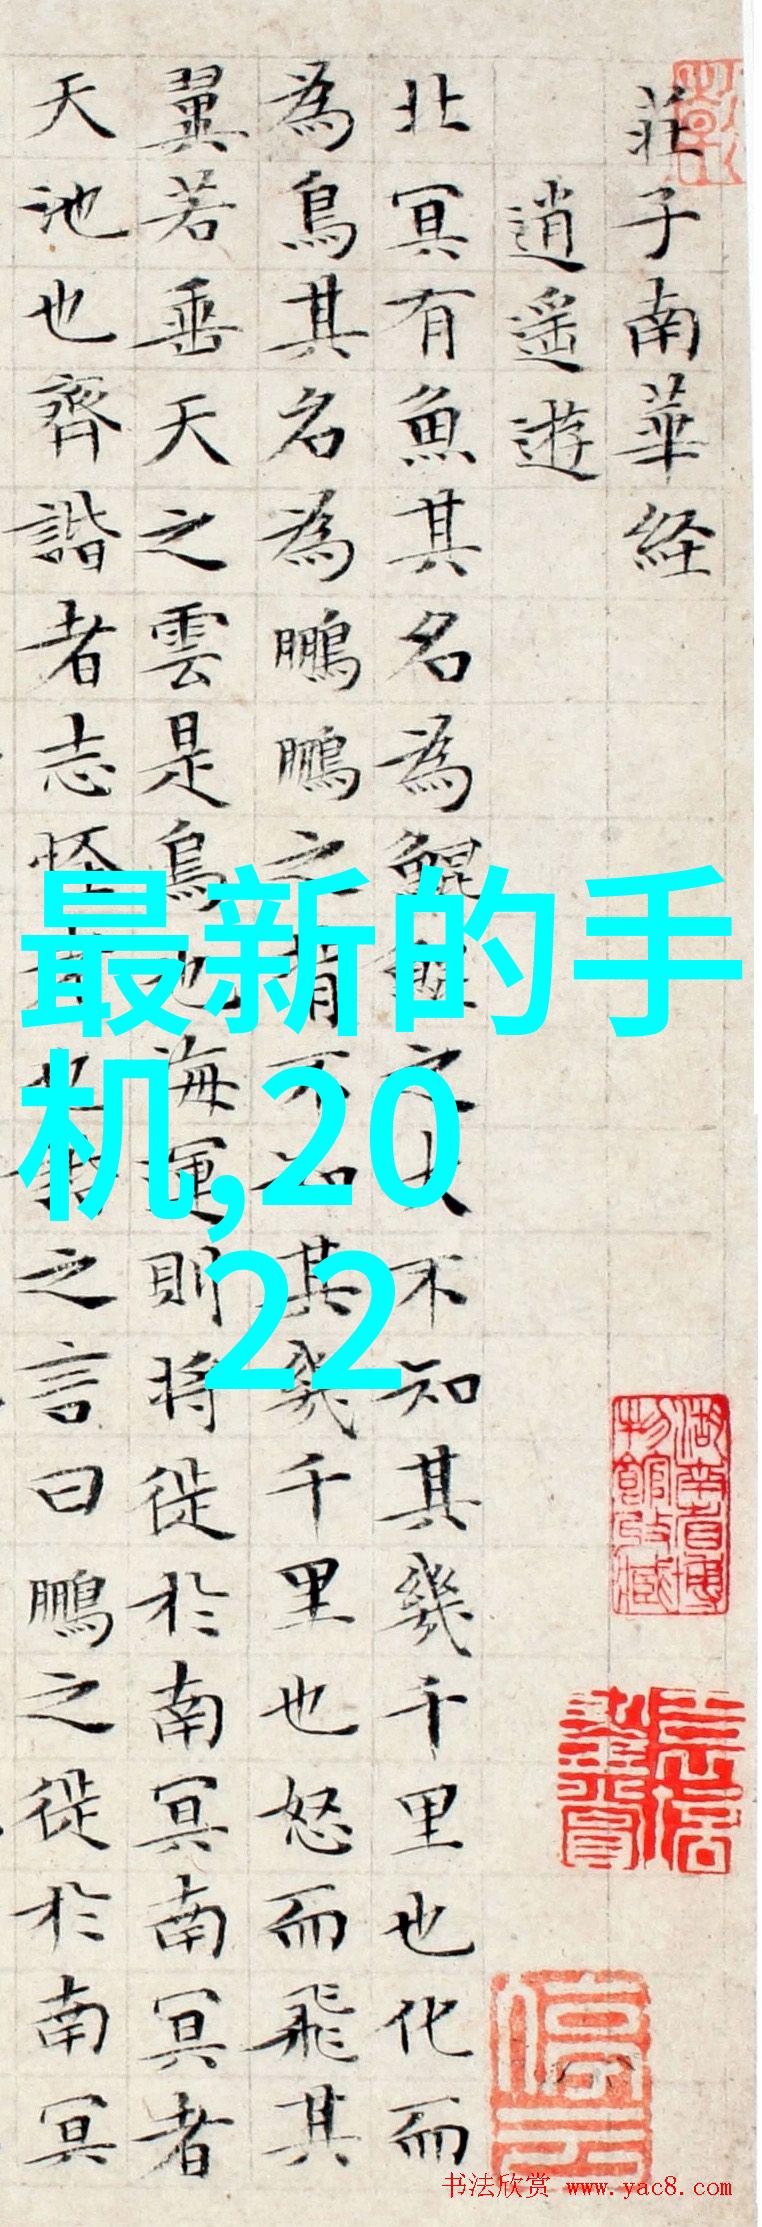 莊子南華経
逍遥遊
北冥有魚其名為鯤鯤之大不知其幾千里也化而
為鳥其名為鵬鵬之背不知其幾千里也怒而飛其
翼若垂天之雲是鳥也海運則將徙於南冥南冥者
天池也齊諧者志怪者也諧之言曰鵬之徙於南冥
最新的手
机,20
22
湖南省博物館收藏
书法欣赏 www.yac8.com